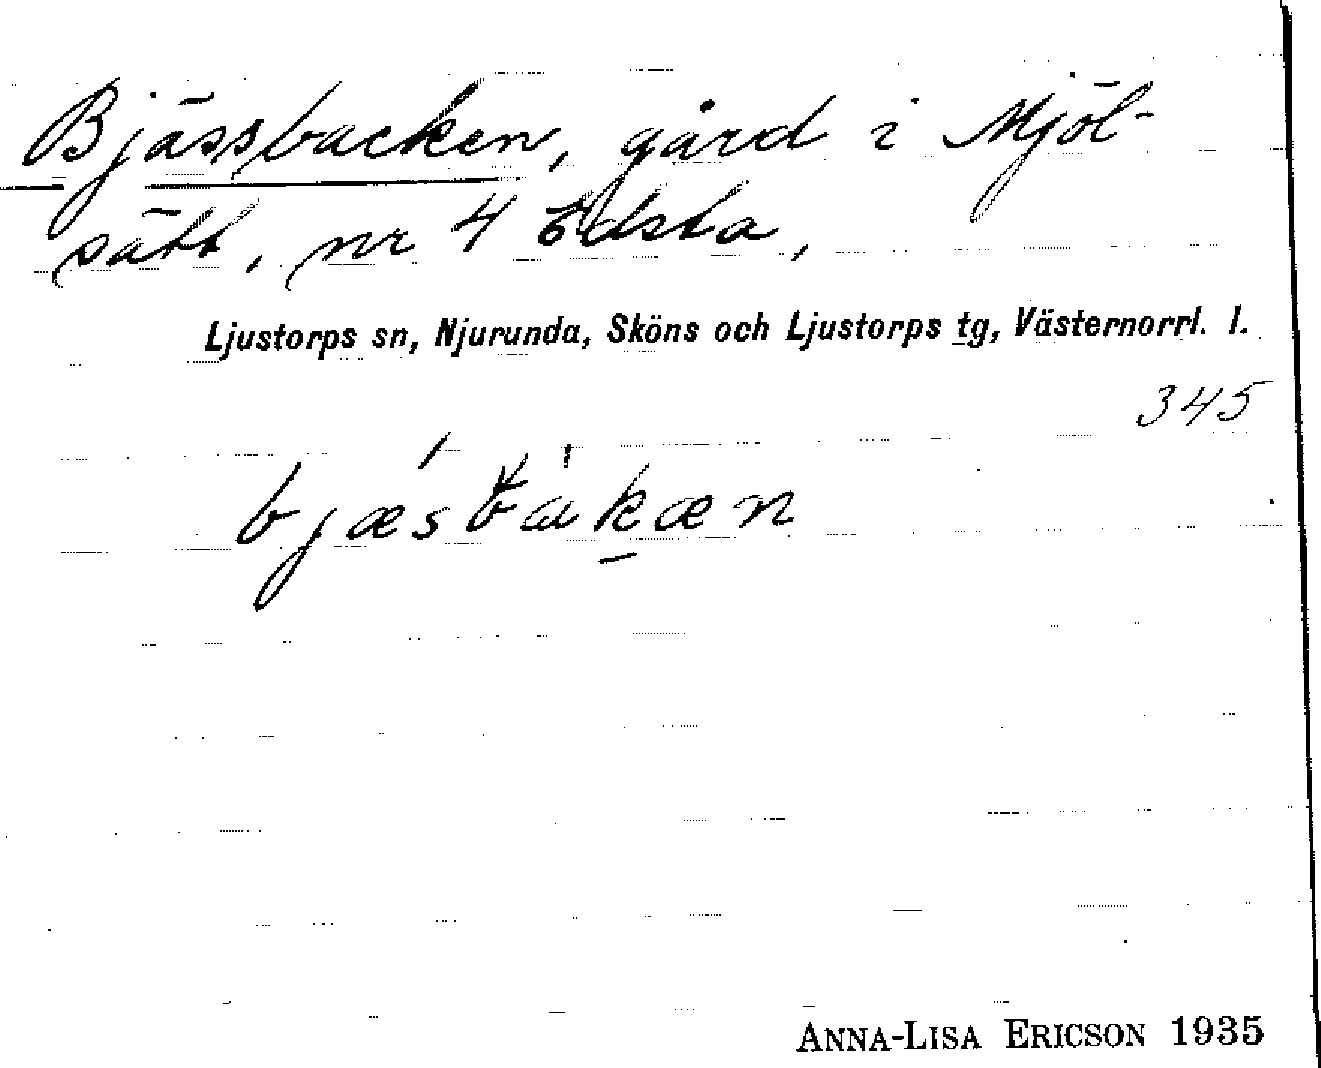 Bjässbacken, gård i Mjöl-
sätt, nr 4 Edsta,
Ljustorps sn, Njurunda, Sköns och Ljustorps tg, Västernorrl. l.
345
bjæsbakæn
ANNA-LISA ERICSON 1935